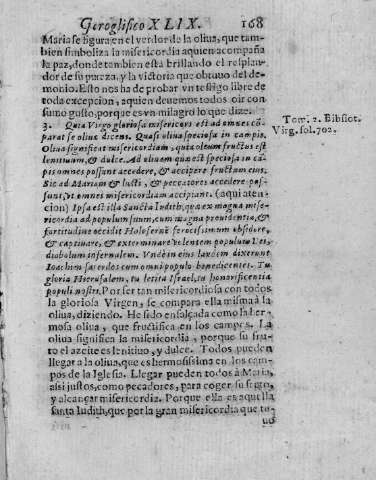 Geroglifico XLIX. 168
Maria se figura en el verdor de la oliua, que tam-
bien simboliza la misericordia aquien acompaña
la paz, donde tambien està brillando el resplan-
dor de su pureza, y la victoria que obtuuo del de-
monio. Esto nos ha de probar vn testigo libre de
toda excepcion, a quien deuemos todos oir con
sumo gusto, porque es vn milagro lo que dize.
3. Quia Virgo gloriosa misericors est ad omnes cõ-
parat se oliuæ dicens. Quasi oliua speciosa in campis.
Oliua significat misericordiam, quia oleum fructus est
lenitiuum, & dulce. Ad oliuam quæ est speciosa in cã-
pis omnes possunt accedere, & accipere fructum eius.
Sic ad Mariam & iusti, & peccatores accedere pos-
sunt, vt omnes misericordiam accipiant. (aqui aten-
cion) Ipsa est illa Sancta Iudith, quæ ex magna mise-
ricordia ad populum suum, cum magna prudentia, &
fortitudine occidit Holofernẽ ferocissimum obsidere,
& captiuare, & exterminare volentem populum Dei,
diabolum infernalem. Vnde in eius laudem dixerunt
Ioachim sacerdos cum omni populo benedicentes. Tu
gloria Hierusalem, tu letitia Israel, tu honorificentia
populi nostri. Por ser tan misericordiosa con todos
la gloriosa Virgen, se compara ella misma à la
oliua, diziendo. He sido ensalçada como la her-
mosa oliua, que fructifica en los campos. La
oliua significa la misericordia, porque su fru-
to el azeite es lenitiuo, y dulce. Todos pueden
llegar à la oliua, que es hermosissima en los cam-
pos de la Iglesia. Llegar pueden todos à Maria,
assi justos, como pecadores, para coger su fruto,
y alcançar misericordia. Porque ella es aquella
santa Iudith, que por la gran misericordia que tu-
uo
Tom. 2. Bibliot.
Virg. fol. 702.